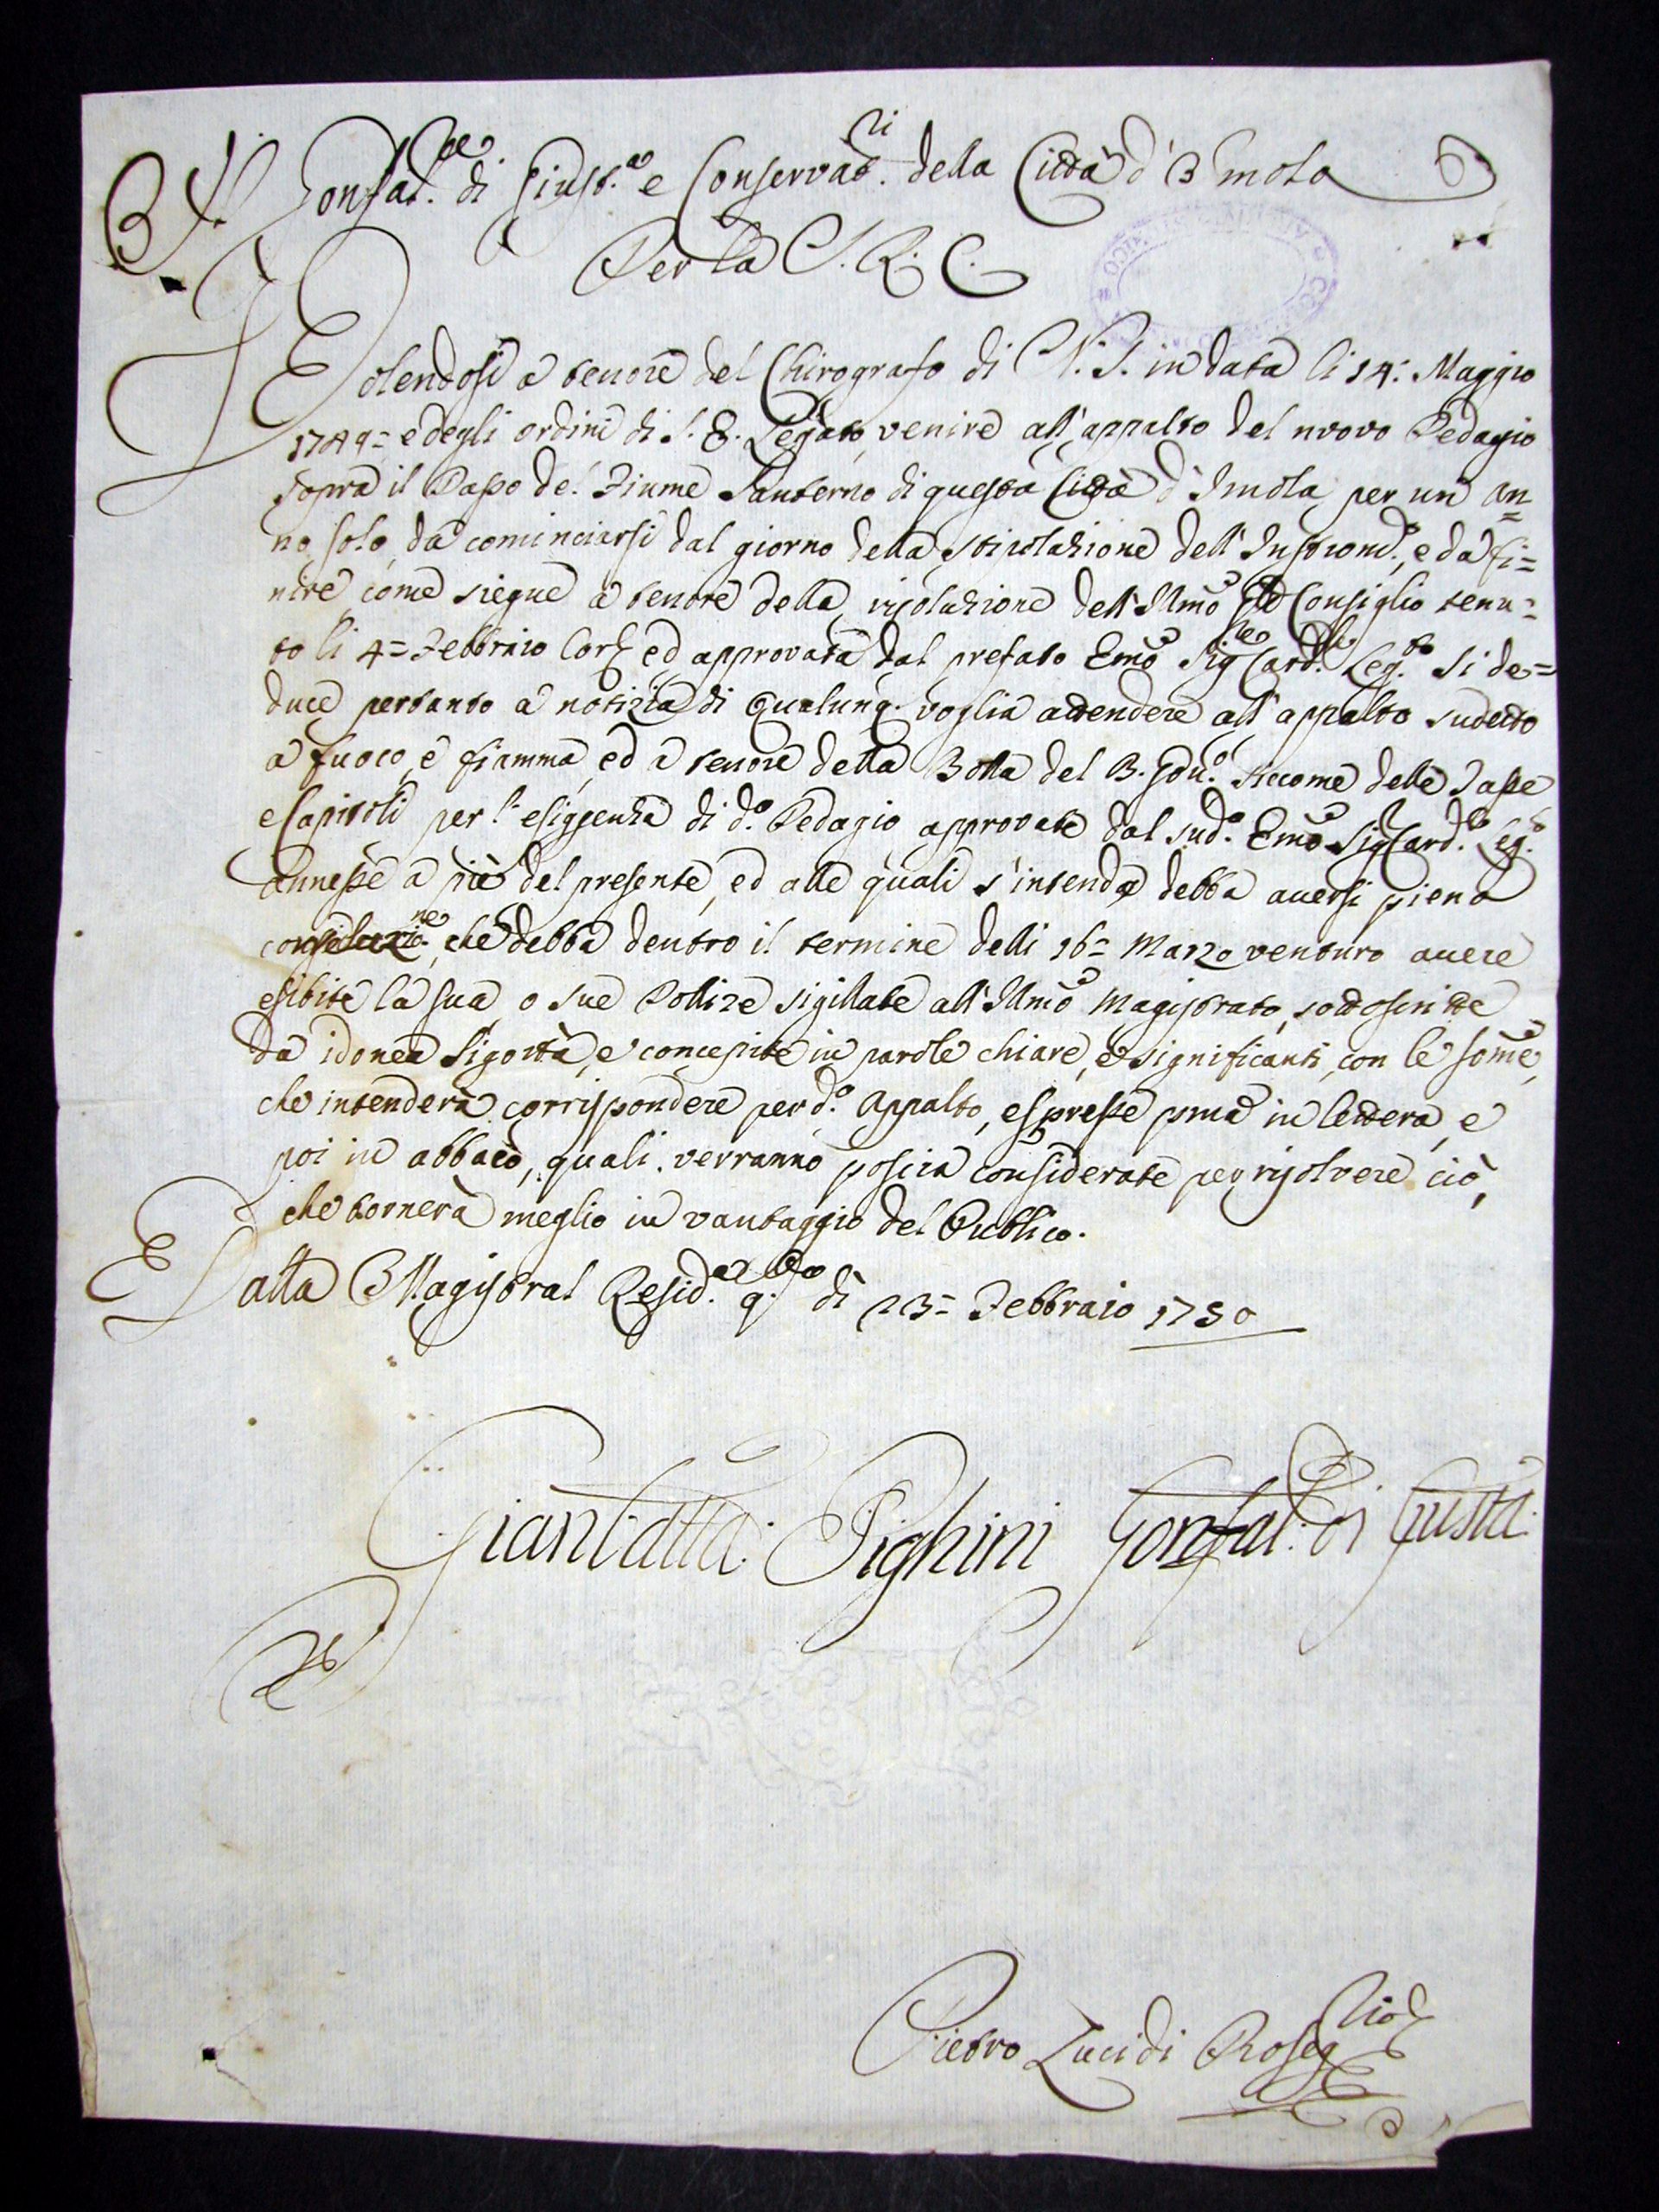 Il Gonfal.re di Giust.a e Conservat.ri della Città d'Imola
Per la S. R. C.
Volendosi a tenore del Chirografo di N. S. in data li 14: Maggio
1749= e degli ordini di S. E. Legato, venire all'appalto del nuovo Pedagio
sopra il Passo del Fiume Santerno di questa Città d'Imola, per un an=
no solo, da cominciarsi dal giorno della stipolazione dell'Instrom.o, e da fi=
nire come siegue a tenore della risoluzione dell'Illmo Consiglio tenu=
to li 4= Febbraio Corr.e ed approvata dal prefato Emo Sig.re Card.le Leg.to si de=
duce pertanto a notizia di qualunq. voglia attendere all'appalto sudetto
a fuoco, e fiamma, ed a tenore della Bolla del B. Gou.o siccome delle Tasse
e Capitoli per l'esiggenza di d.o Pedagio approvate dal sud.o Emo Sig Card.le Leg.to
annesse a piè del presente, ed alle quali s'intenda debba aversi piena
che debba dentro il termine delli 16= Marzo venturo avere
esibite la sua, o sue Pollize sigillate all'Illmo Magistrato, sottoscritte
da idonea Sigortà, e concepite in parole chiare, e significanti, con le some,
che intenderà corrispondere per d.o Appalto, espresse pma in lettera, e
poi in abbaco, quali verranno poscia considerate per risolvere ciò,
che tornerà meglio in vantaggio del Publico.
Dalla Magistral Resid.za q.to dì 23= Febbraio 1750
Gianbatta: Pighini Gonfal.re di Giusta:
Pietro Lucidi Proseg.rio